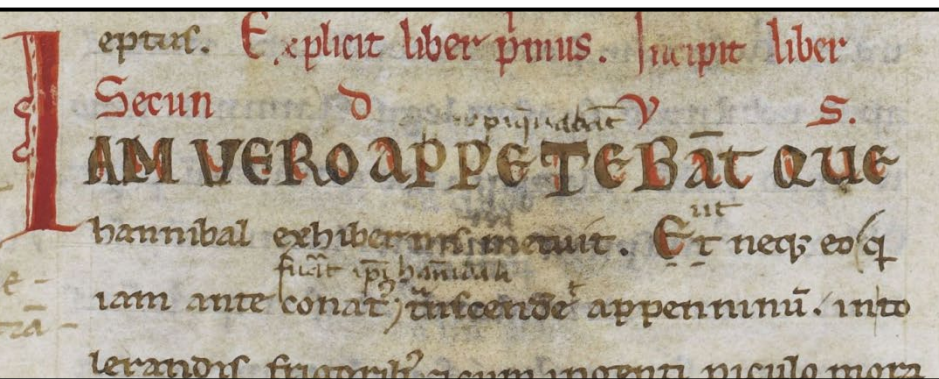 eptus. Explicit liber p̄mus. Incipit liber
Secun d V S.
IAM VERO APPETEBĀT QUE
hannibal exhibernis metuit. Et neqȝ eo q
fuīt ip̄i hannibali
iam ante conatꝰ t̄nscendē appenninū. into
lerandis frigoribꝰ acum ingenti piculo mora